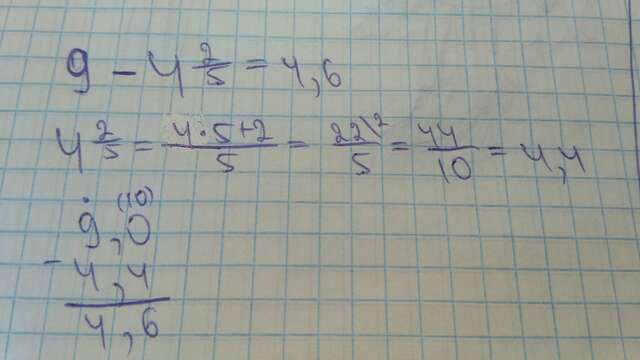 9 - 4 2/5 = 4,6
4 2/5 = (4·5+2)/5 = 22\2/5 = 44/10 = 4,4
. (10)
9,0
- 4,4
4,6